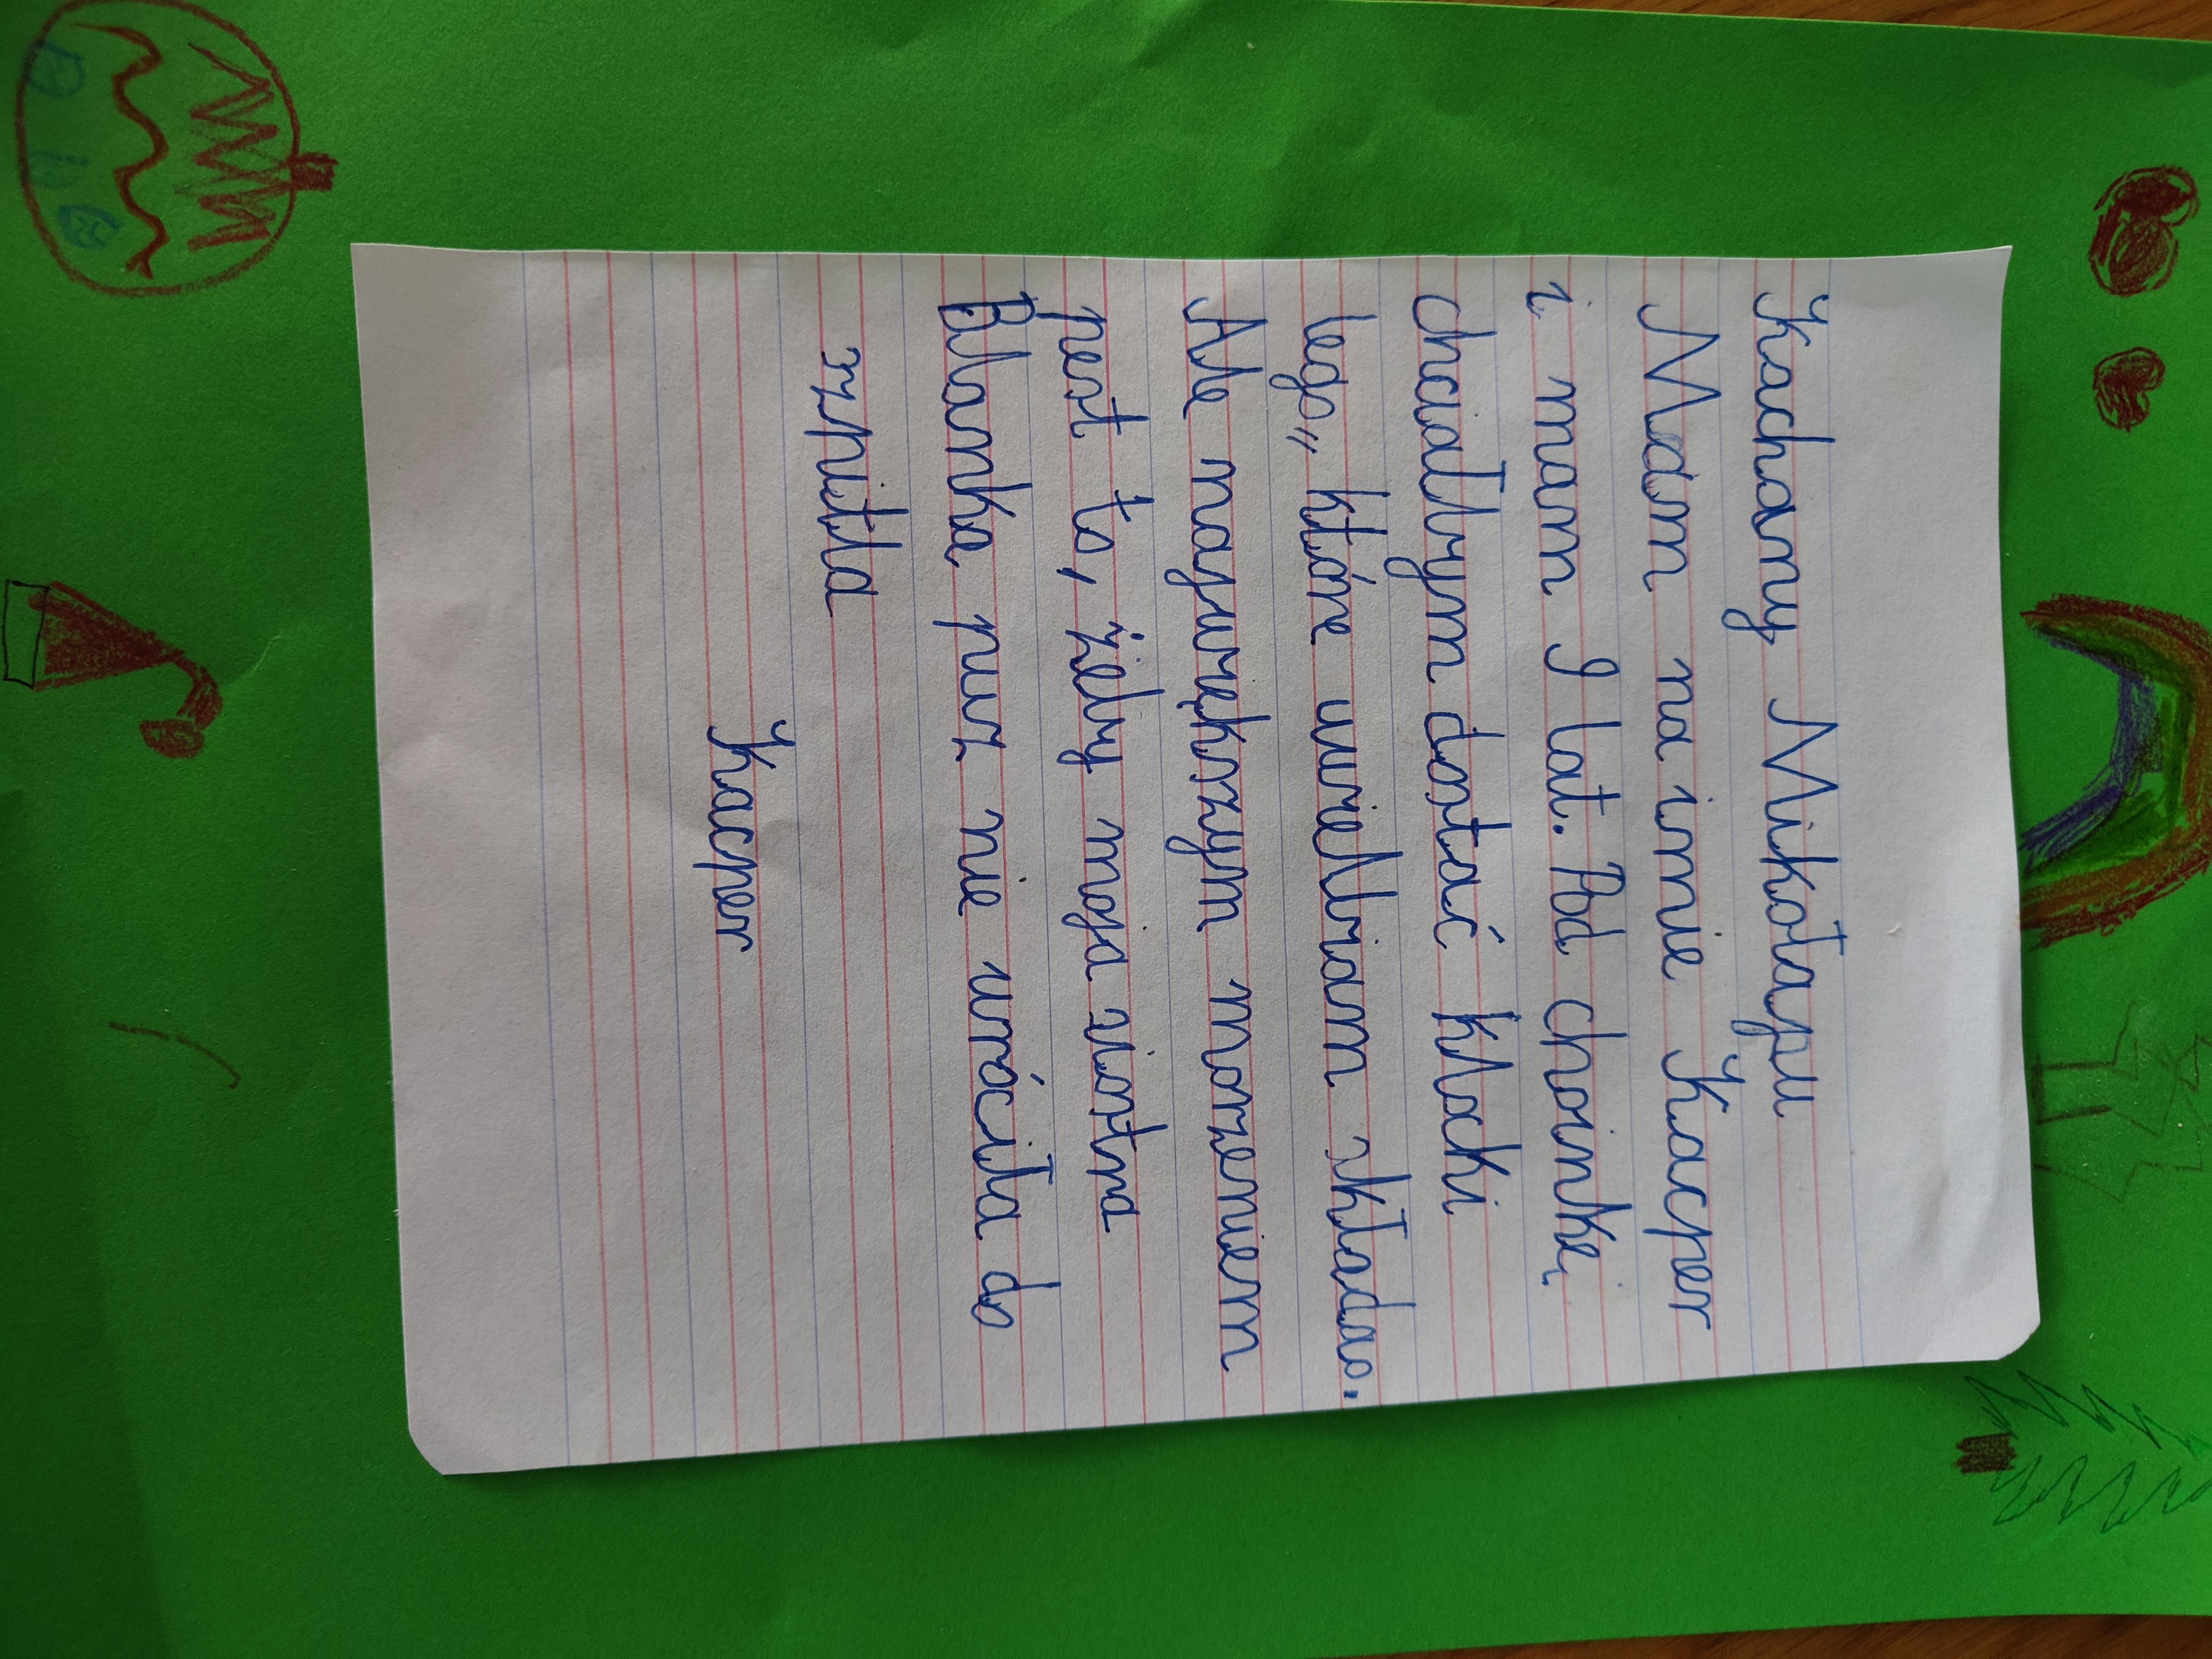 Kachany Mikołaju
Mam na imie Kacper
i mam 9 lat. Pod choinkę
chciałbym dostać klocki
lego,, które uwielbiam składać.
Ale największym marzeniem
jest to, żeby moja siostra
Blanka już nie wróciła do
szpitla
Kacper